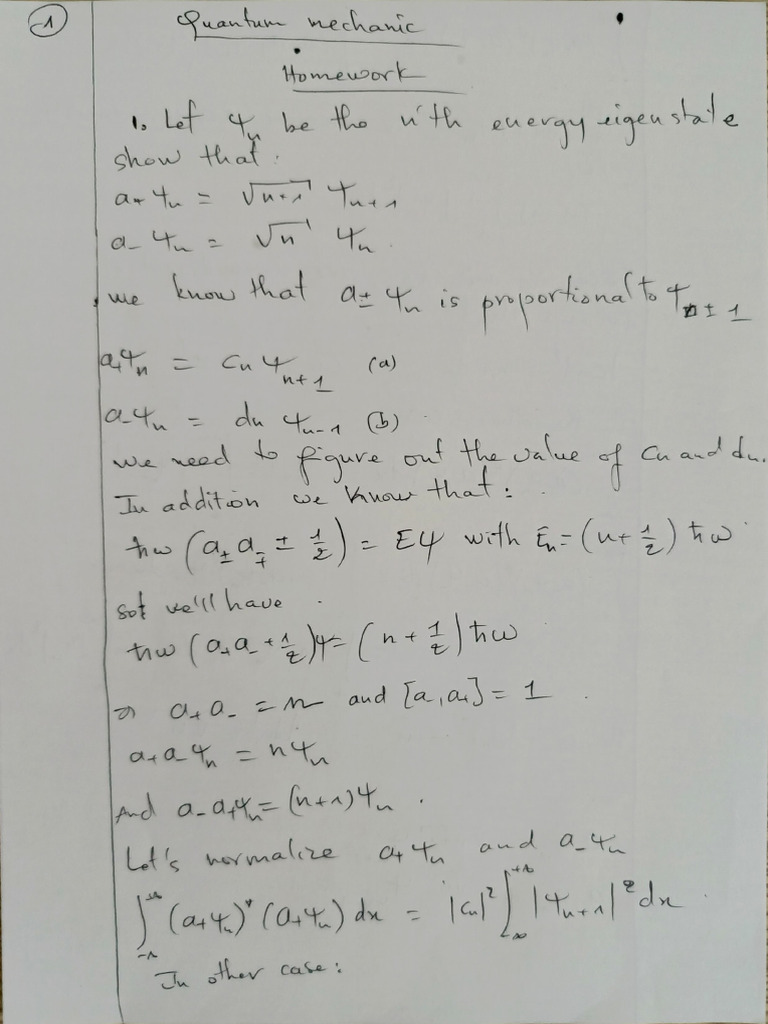 1
Quantum mechanic
Homework
1. Let ψ_n be the n'th energy eigenstate
show that:
a₊ψ_n = √(n+1) ψ_{n+1}
a₋ψ_n = √n ψ_n.
we know that a_± ψ_n is proportional to ψ_{n±1}
a₊ψ_n = c_n ψ_{n+1} (a)
a₋ψ_n = d_n ψ_{n-1} (b)
we need to figure out the value of c_n and d_n.
In addition we know that:
ħω (a_± a_∓ ± 1/2) = Eψ with E_n = (n + 1/2) ħω
so we'll have
ħω (a₊a₋ + 1/2)ψ = (n + 1/2) ħω
a₊a₋ = n and [a₋, a₊] = 1.
a₊a₋ψ_n = nψ_n
And a₋a₊ψ_n = (n+1)ψ_n.
Let's normalize a₊ψ_n and a₋ψ_n
∫_{-∞}^{+∞} (a₊ψ_n)* (a₊ψ_n) dx = |c_n|² ∫_{-∞}^{+∞} |ψ_{n+1}|² dx.
In other case: